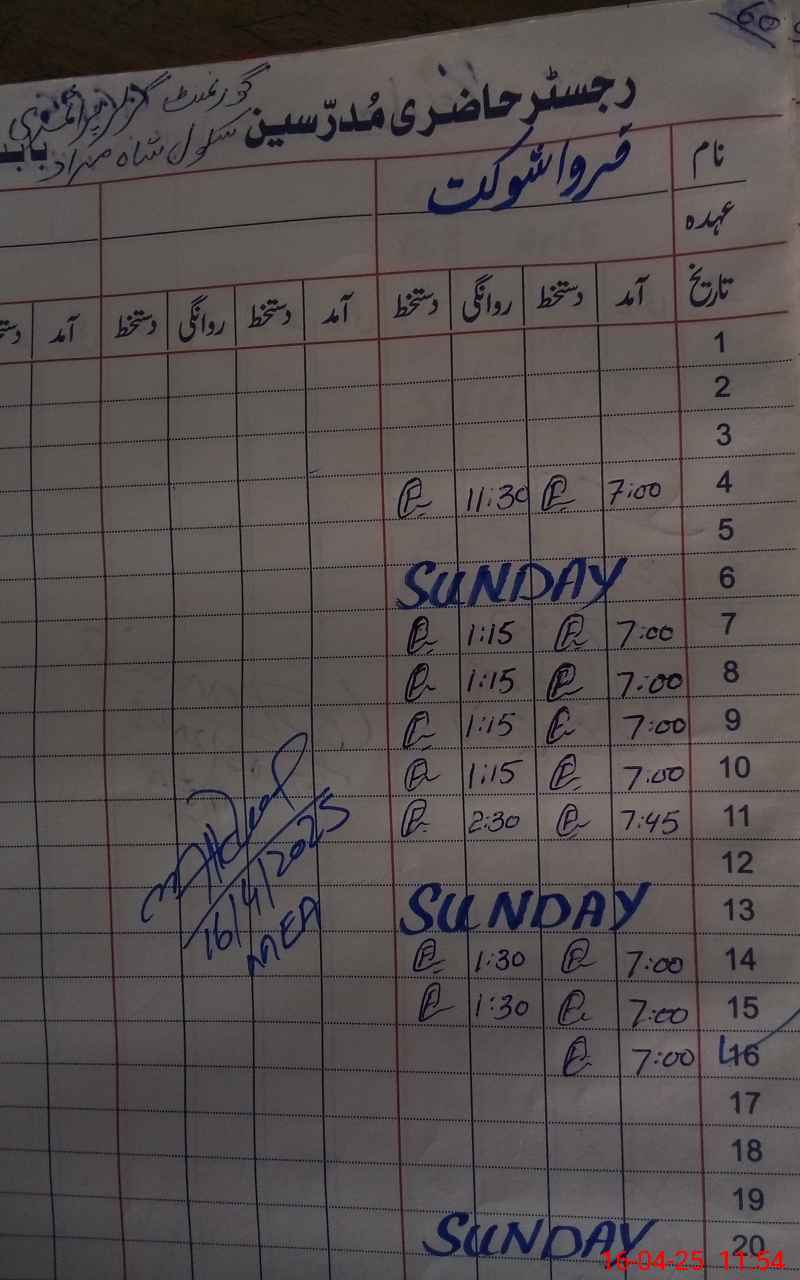 60
رجسٹر حاضری مُدرّسین گورنمنٹ گرلز پرائمری
سکول شاہ مراد
نام فروا شوکت
عہدہ
تاریخ آمد دستخط روانگی دستخط آمد دستخط روانگی دستخط آمد
1
2
3
4 7:00 11:30
5
6 SUNDAY
7 7:00 1:15
8 7:00 1:15
9 7:00 1:15
10 7:00 1:15
11 7:45 2:30
12
13 SUNDAY
14 7:00 1:30
15 7:00 1:30
16 7:00
17
18
19
20 SUNDAY
16/4/2025
MEA
16-04-25 11:54